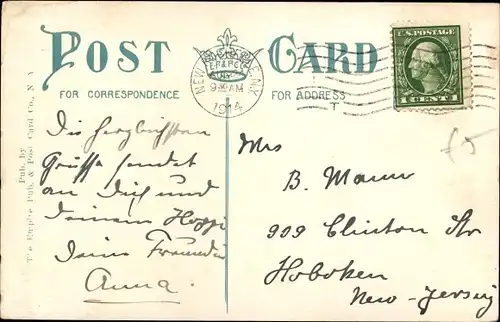 POST CARD
FOR CORRESPONDENCE
FOR ADDRESS
NEW
N.Y.
9-30 AM
1914
T
U.S. POSTAGE
1 CENT 1
Pub. by
The Empire Pub. & Post Card Co., N.Y.
Die herzlichsten
Grüsse sendet
an Dich und
Deinem
Deine Freundin
Anna.
Mrs
B. Mann
909 Clinton Str
Hoboken
New-Jersey
£5